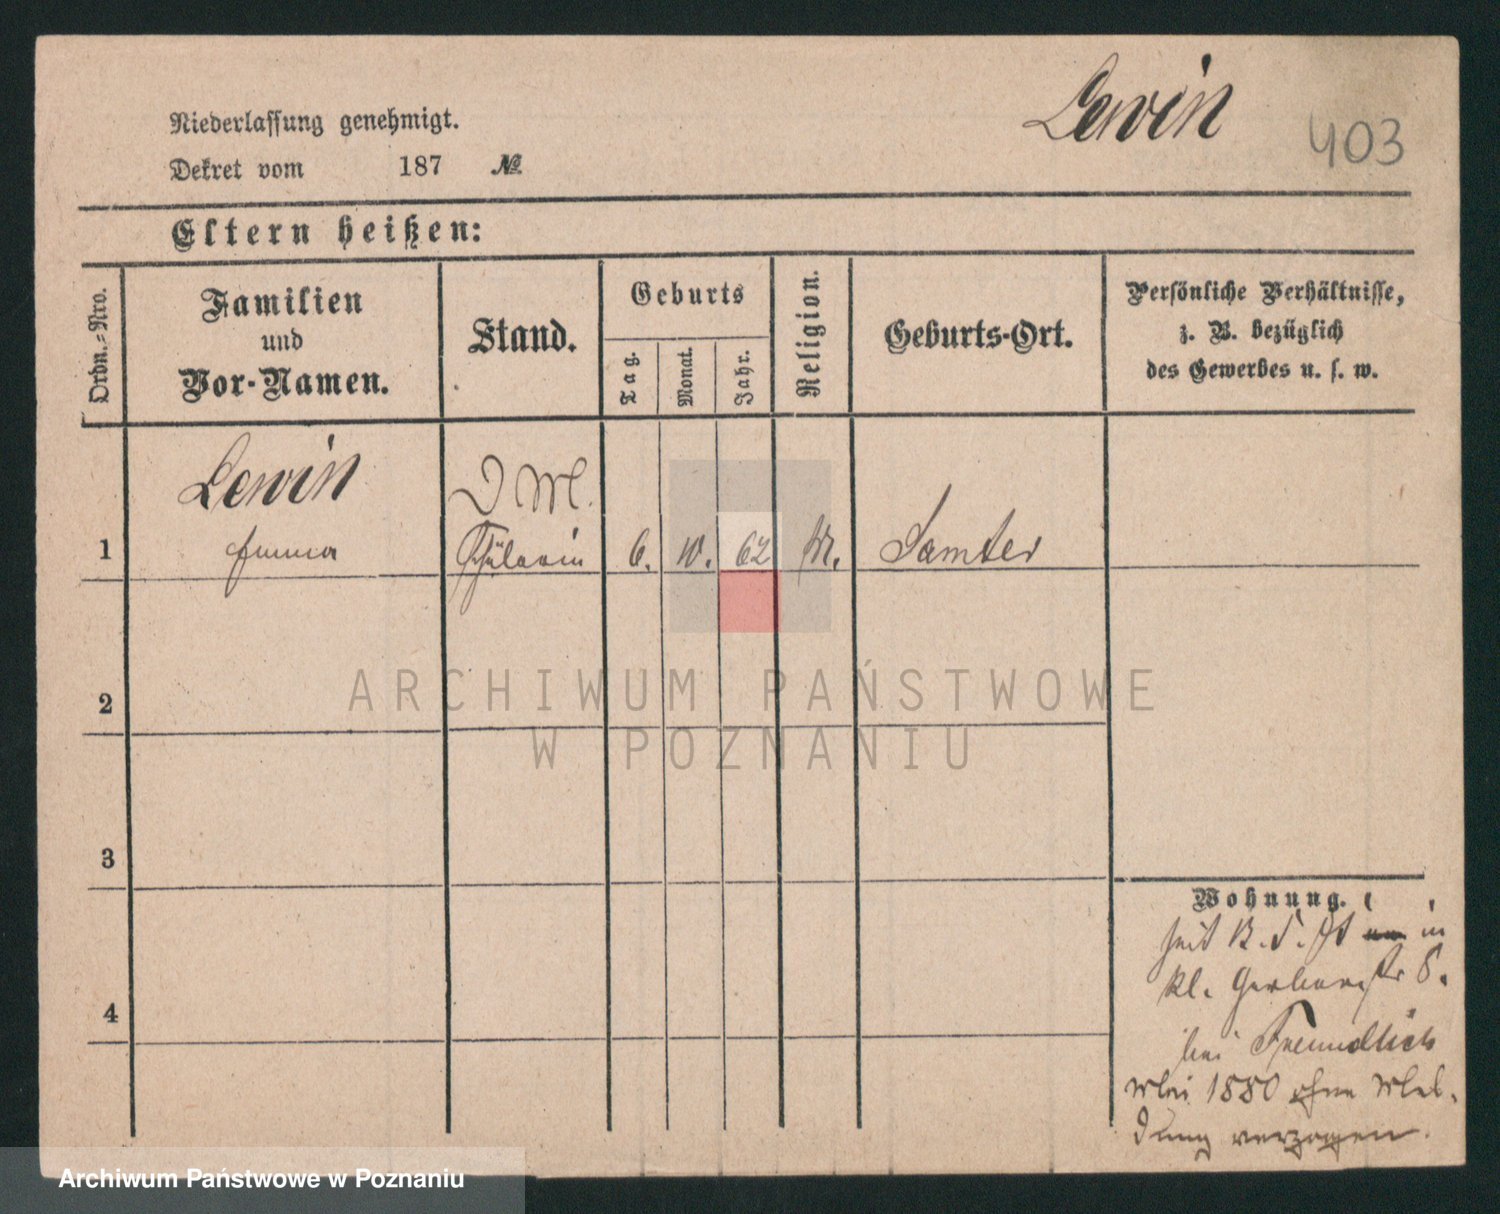 Lewin
403
Niederlassung genehmigt.
Dekret vom 187 №
Eltern heißen:
Ordn.-Nro.
Familien
und
Vor-Namen.
Stand.
Geburts
Tag.
Monat.
Jahr.
Religion.
Geburts-Ort.
Persönliche Verhältnisse,
z. B. bezüglich
des Gewerbes u. s. w.
Lewin
Emma
1
Schülerin
6. 10. 62
Samter
2
3
4
Wohnung.
seit in
kl. Gerberstr 8.
bei Freundlich
Mai 1880 ohne Mel-
dung verzogen.
ARCHIWUM PAŃSTWOWE
W POZNANIU
Archiwum Państwowe w Poznaniu